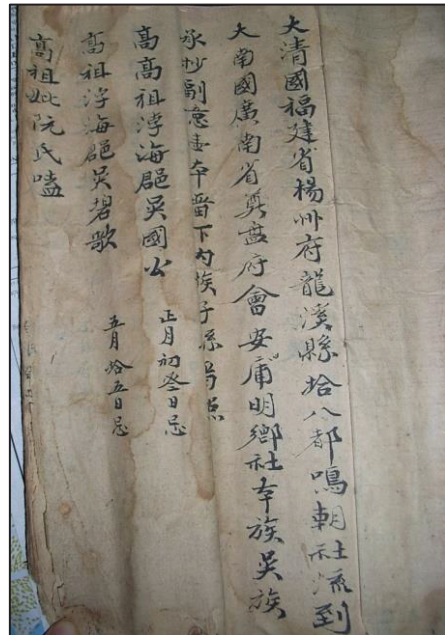 大清國福建省楊州府龍溪縣拾八都鳴朝社流到
大南國廣南省奠盘府會安庸明鄉社本族吳族
承抄副意本番下内族子孫
高高祖浮海郡吳國公 正月初叁日忌
高祖浮海郡吳碧歌 五月拾五日忌
高祖妣阮氏嗑